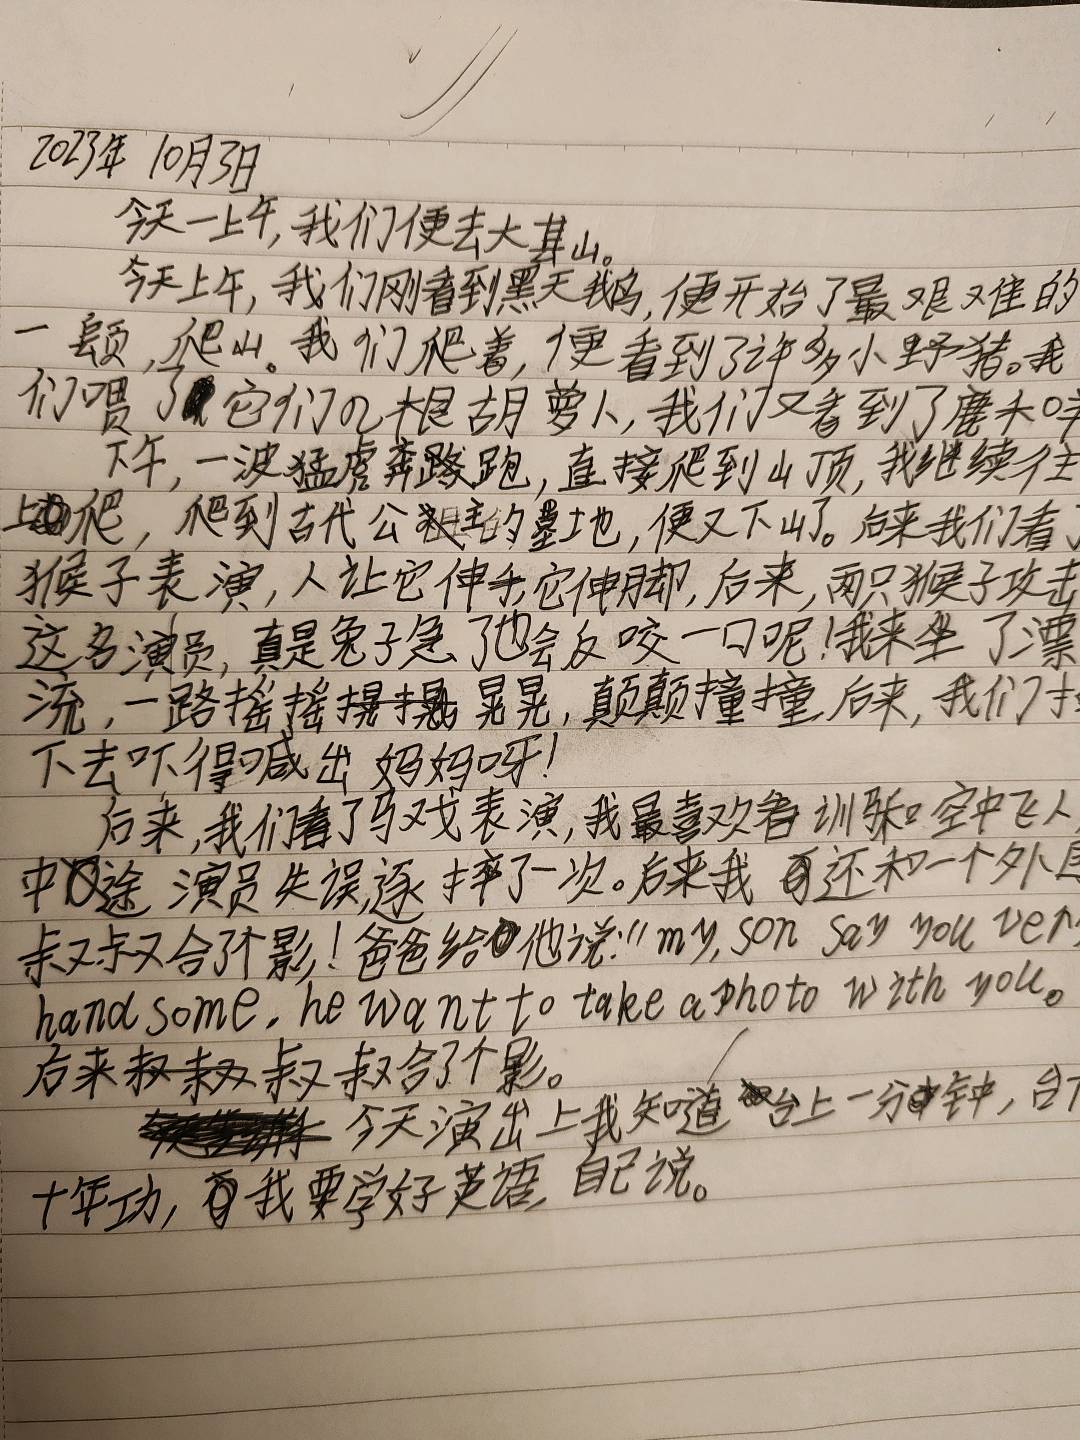 2023年 10月3日
今天一上午,我们便去大其山。
今天上午,我们刚看到黑天鹅,便开始了最艰难的
一项,爬山。我们爬着,便看到了许多小野猪。我
们喂了它们几根胡萝卜,我们又看到了鹿和羊
下午,一波猛虎奔跑,直接爬到山顶,我继续往
上爬,爬到古代公主的墓地,便又下山了。后来我们看了
猴子表演,人让它伸手它伸脚,后来,两只猴子攻击
这名演员,真是兔子急了也会反咬一口呢!我来坐了漂
流,一路摇摇晃晃,颠颠撞撞,后来,我们
下去吓得喊出妈妈呀!
后来,我们看了马戏表演,我最喜欢看训和空中飞人,
中途演员失误,逐摔了一次。后来我还和一个外国
叔叔合了个影!爸爸给他说:"my, son say you very
handsome, he want to take a photo with you。
后来叔叔合了个影。
今天演出上我知道台上一分钟,台下
十年功,我要学好英语,自己说。